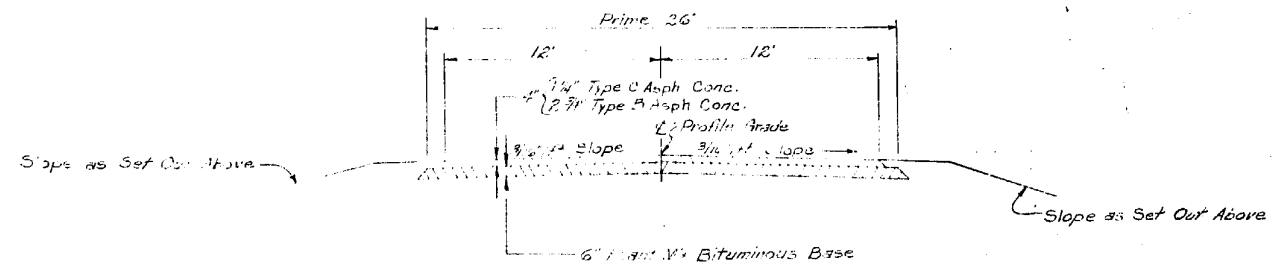 Prime 26'
12' 12'
4" 1¼" Type C Asph Conc.
2¾" Type B Asph Conc.
℄ Profile Grade
Slope 3/16"/ft Slope
Slope as Set Out Above
Slope as Set Out Above
6" Bituminous Base